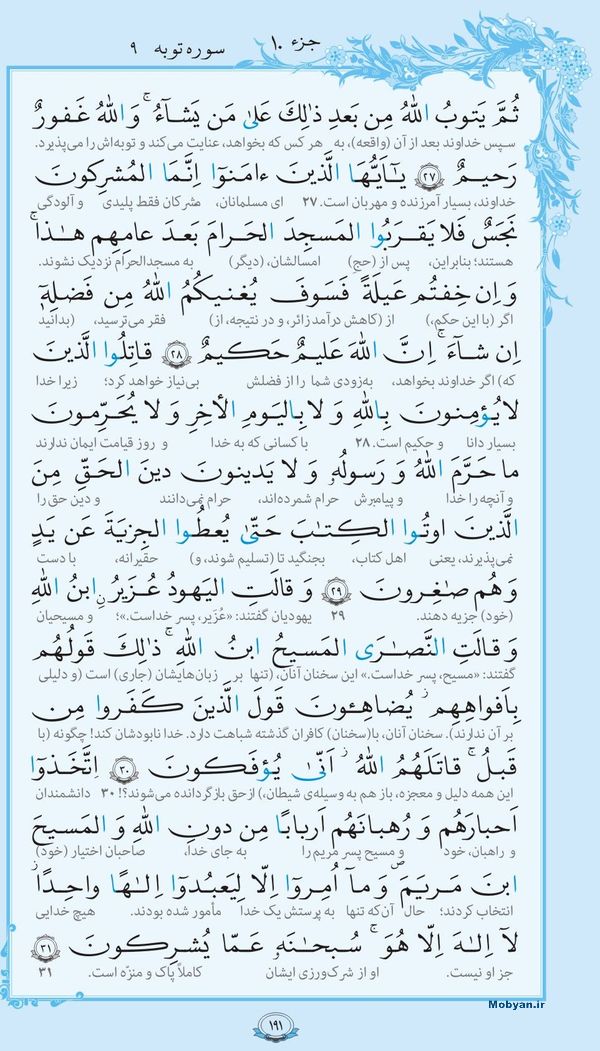 جزء ۱۰
سوره توبه ۹
ثُمَّ يَتوبُ اللهُ مِن بَعدِ ذٰلِكَ عَلىٰ مَن يَشآءُ ۚ وَ اللهُ غَفورٌ
سپس خداوند بعد از آن (واقعه)، به هر کس که بخواهد، عنایت می‌کند و توبه‌اش را می‌پذیرد.
رَحيمٌ ۲۷ يٰٓاَيُّهَا الَّذينَ ءامَنوٓا اِنَّمَا المُشرِكونَ
خداوند، بسیار آمرزنده و مهربان است. ۲۷ ای مسلمانان، مشرکان فقط پلیدی و آلودگی
نَجَسٌ فَلا يَقرَبُوا المَسجِدَ الحَرامَ بَعدَ عامِهِم هٰذا ۚ
هستند؛ بنابراین، پس از (حج) امسالشان، (دیگر) به مسجدالحرام نزدیک نشوند.
وَ اِن خِفتُم عَيلَةً فَسَوفَ يُغنيكُمُ اللهُ مِن فَضلِهٖٓ
اگر (با این حکم،) از (کاهش درآمد زائر، و در نتیجه، از) فقر می‌ترسید، (بدانید
اِن شآءَ ۚ اِنَّ اللهَ عَليمٌ حَكيمٌ ۲۸ قاتِلُوا الَّذينَ
که) اگر خداوند بخواهد، به‌زودی شما را از فضلش بی‌نیاز خواهد کرد؛ زیرا خدا
لا يُؤمِنونَ بِاللهِ وَ لا بِاليَومِ الأخِرِ وَ لا يُحَرِّمونَ
بسیار دانا و حکیم است. ۲۸ با کسانی که به خدا و روز قیامت ایمان ندارند
ما حَرَّمَ اللهُ وَ رَسولُهٗ وَ لا يَدينونَ دينَ الحَقِّ مِنَ
و آنچه را خدا و پیامبرش حرام شمرده‌اند، حرام نمی‌دانند و دین حق را
الَّذينَ اوتُوا الكِتٰبَ حَتّىٰ يُعطُوا الجِزيَةَ عَن يَدٍ
نمی‌پذیرند، یعنی اهل کتاب، بجنگید تا (تسلیم شوند، و) حقیرانه، با دست
وَ هُم صٰغِرونَ ۲۹ وَ قالَتِ اليَهودُ عُزَيرٌ ابنُ اللهِ
(خود) جزیه دهند. ۲۹ یهودیان گفتند: «عُزَیر، پسر خداست.»؛ و مسیحیان
وَ قالَتِ النَّصٰرَى المَسيحُ ابنُ اللهِ ۚ ذٰلِكَ قَولُهُم
گفتند: «مسیح، پسر خداست.» این سخنان آنان، (تنها بر زبان‌هایشان (جاری) است (و دلیلی
بِاَفواهِهِم ۖ يُضاهِئونَ قَولَ الَّذينَ كَفَروا مِن
بر آن ندارند). سخنان آنان، با (سخنان) کافران گذشته شباهت دارد. خدا نابودشان کند! چگونه (با
قَبلُ ۚ قاتَلَهُمُ اللهُ ۖ اَنّىٰ يُؤفَكونَ ۳۰ اِتَّخَذوٓا
این همه دلیل و معجزه، باز هم به وسیله‌ی شیطان،) از حق بازگردانده می‌شوند؟! ۳۰ دانشمندان
اَحبارَهُم وَ رُهبانَهُم اَربابًا مِن دونِ اللهِ وَ المَسيحَ
و راهبان، خود و مسیح پسر مریم را به جای خدا، صاحبان اختیار (خود)
ابنَ مَريَمَ وَ مآ اُمِروٓا اِلّا لِيَعبُدوٓا اِلٰهًا واحِدًا ۖ
انتخاب کردند؛ حال آن‌که تنها به پرستش یک خدا مأمور شده بودند. هیچ خدایی
لآ اِلٰهَ اِلّا هُوَ ۚ سُبحٰنَهٗ عَمّا يُشرِكونَ ۳۱
جز او نیست. او از شرک‌ورزی ایشان کاملاً پاک و منزّه است. ۳۱
Mobyan.ir
۱۹۱